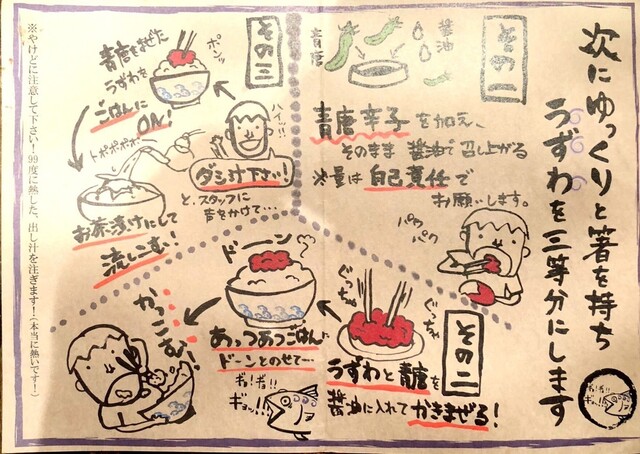 次にゆっくりと箸を持ち
うずわを三等分にします
その一
青唐
醤油
青唐辛子を加え、
そのまま醤油で召し上がる
※量は自己責任で
お願いします。
パク
パク
その二
ぐっちゃ
ぐっちゃ
うずわと青唐を
醤油に入れてかきまぜる!
ドーン
あっつあつごはんに
ドーンとのせて…
かっこむ!
ギョ!ギョ!!
ギョッ!!
その三
ポンッ
青唐をまぜた
うずわを
ごはんに
ON!
ハイッ!!
ダシ汁下さい!
と、スタッフに
声をかけて…
トポポポポ
お茶漬けにして
流しこむ!
※やけどに注意して下さい!99度に熱した、出し汁を注ぎます!(本当に熱いです!)
ギョ!ギョ!!
ギョ!!